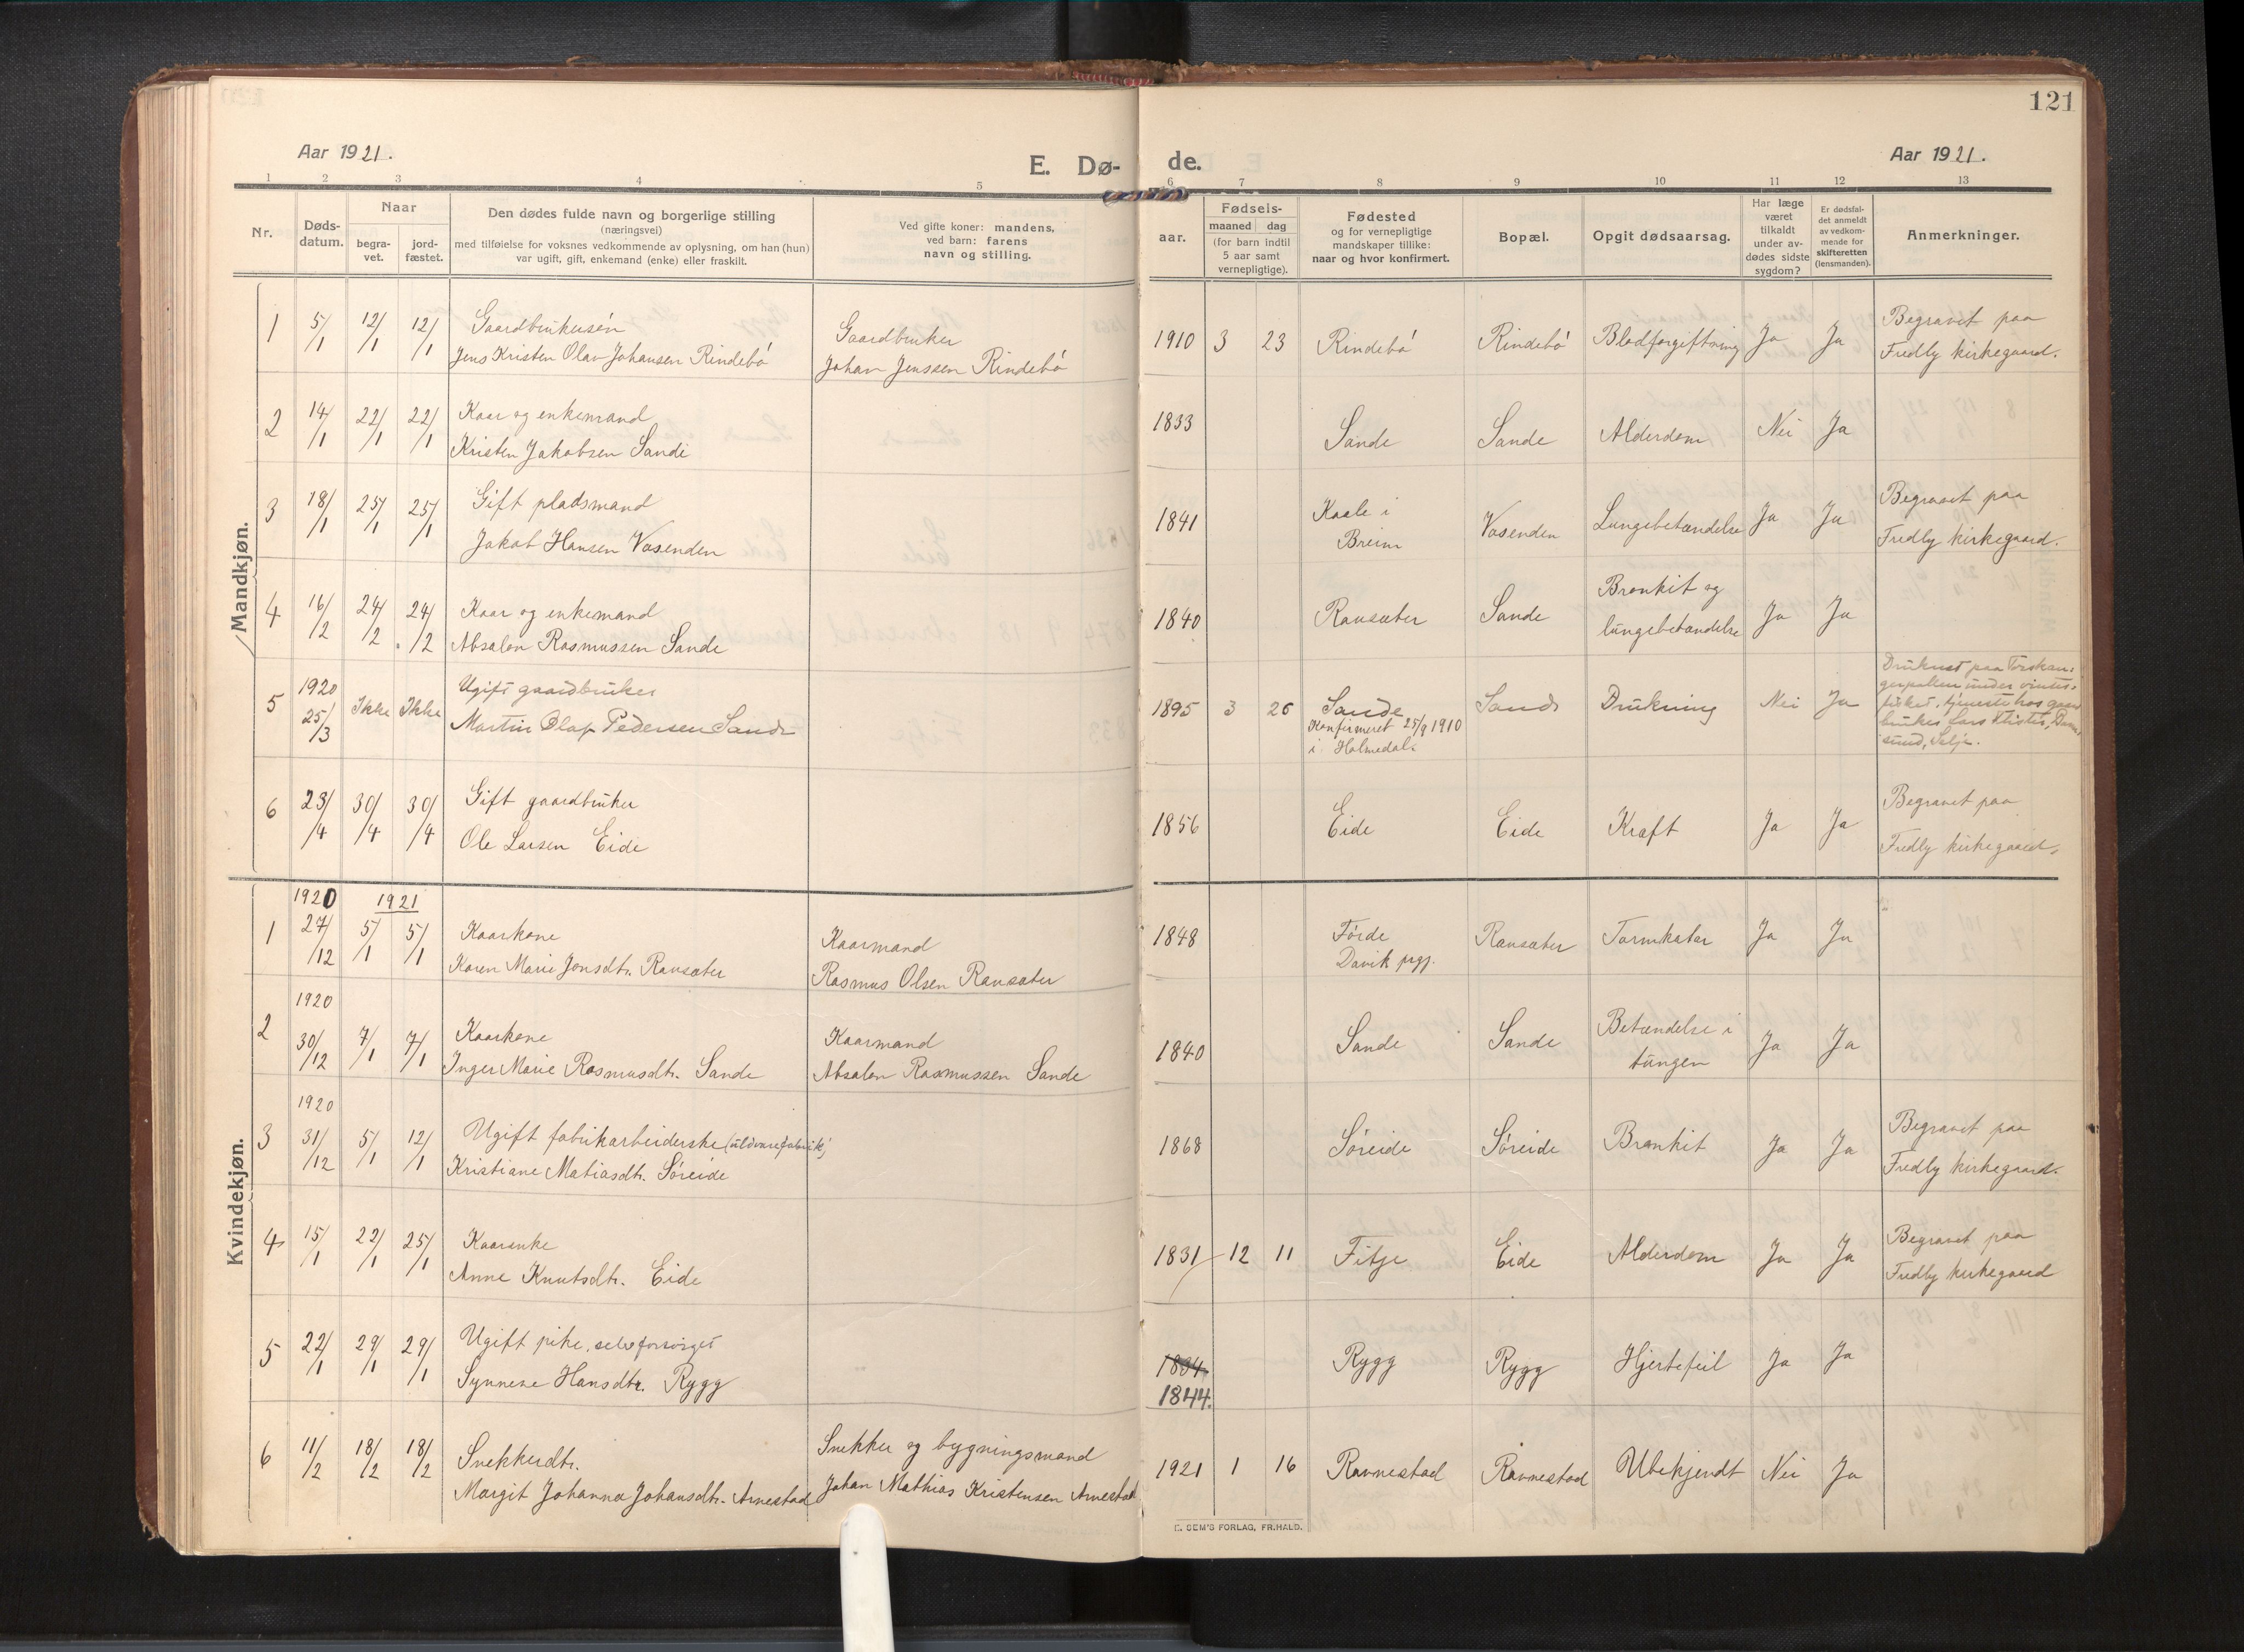 121
Aar 1921.
E. Dø-
de.
Aar 1921.
1 2 3 4 5 6 7 8 9 10 11 12 13
Nr.
Døds-
datum.
Naar
begra-
vet.
jord-
fæstet.
Den dødes fulde navn og borgerlige stilling
(næringsvei)
med tilføielse for voksnes vedkommende av oplysning, om han (hun)
var ugift, gift, enkemand (enke) eller fraskilt.
Ved gifte koner: mandens,
ved barn: farens
navn og stilling.
Fødsels-
aar.
maaned dag
(for barn indtil
5 aar samt
vernepligtige).
Fødested
og for vernepligtige
mandskaper tillike:
naar og hvor konfirmert.
Bopæl.
Opgit dødsaarsag.
Har læge
været
tilkaldt
under av-
dødes sidste
sygdom?
Er dødsfal-
det anmeldt
av vedkom-
mende for
skifteretten
(lensmanden).
Anmerkninger.
Mandkjøn.
1 5/1 12/1 12/1 Gaardbrukersøn
Jens Kristen Olav Johansen Rindebö
Gaardbruker
Johan Jenssen Rindebö
1910 3 23 Rindebö Rindebö Blodforgiftning Ja Ja
Begravet paa
Fredly kirkegaard.
2 14/1 22/1 22/1 Kaar og enkemand
Kristen Jakobsen Sande
1833 Sande Sande Alderdom Nei Ja
3 18/1 25/1 25/1 Gift pladsmand
Jakob Hansen Vasenden
1841 Kaale i
Breim
Vasenden Lungebetændelse Ja Ja
Begravet paa
Fredly kirkegaard.
4 16/2 24/2 24/2 Kaar og enkemand
Absalon Rasmussen Sande
1840 Ravsæter Sande Bronkit og
lungebetændelse
Ja Ja
5 1920
25/3 Ikke Ikke Ugift gaardbruker
Martin Olaf Pedersen Sande
1895 3 26 Sande
Konfirmeret 25/9 1910
i Holmedal.
Sande Drukning Nei Ja
Druknet paa
under
fisket, tjeneste hos
bruker Lars
sund, Selje.
6 23/4 30/4 30/4 Gift gaardbruker
Ole Larsen Eide
1856 Eide Eide Kræft Ja Ja
Begravet paa
Fredly kirkegaard.
Kvindekjøn.
1 1920
27/12 1921
5/1 5/1 Kaarkone
Karen Marie Jonsdtr. Ravsæter
Kaarmand
Rasmus Olsen Ravsæter
1848 Förde
Davik prgj.
Ravsæter Tarmkatar Ja Ja
2 1920
30/12 7/1 7/1 Kaarkone
Inger Marie Rasmusdtr. Sande
Kaarmand
Absalon Rasmussen Sande
1840 Sande Sande Betændelse i
tungen
Ja Ja
3 1920
31/12 5/1 12/1 Ugift fabrikarbeiderske (uldvarefabrik)
Kristiane Matiasdtr. Söreide
1868 Söreide Söreide Bronkit Ja Ja
Begravet paa
Fredly kirkegaard.
4 15/1 22/1 25/1 Kaarenke
Anne Knutsdtr. Eide
1831 12 11 Fitje Eide Alderdom Ja Ja
Begravet paa
Fredly kirkegaard
5 22/1 29/1 29/1 Ugift pike, selvforsörget
Synneve Hansdtr. Rygg
1834
1844.
Rygg Rygg Hjertefeil Ja Ja
6 11/2 18/2 18/2 Snekkerdtr.
Margit Johanna Johansdtr. Arnestad
Snekker og bygningsmand
Johan Mathias Kristensen Arnestad
1921 1 16 Ravnestad Ravnestad Ubekjendt Nei Ja
E. SEM'S FORLAG, FR.HALD.